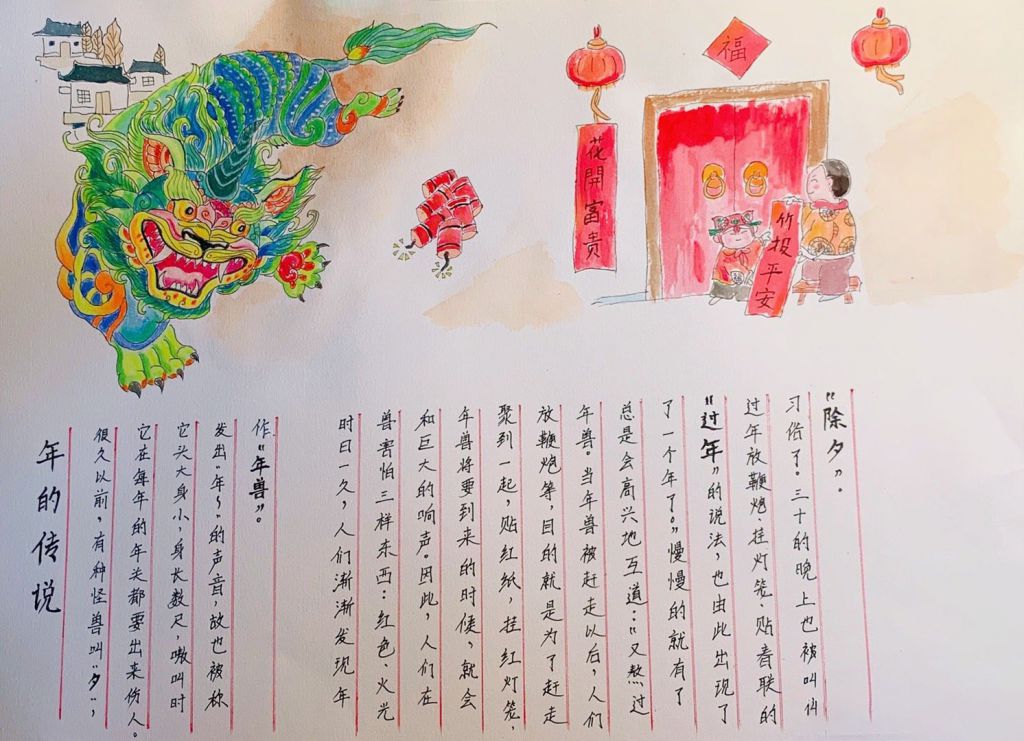 福
花開富贵
竹报平安
年的传说
很久以前，有种怪兽叫“夕”，
它在每年的年关都要出来伤人。
它头大身小，身长数尺，嗷叫时
发出“年~”的声音，故也被称
作“年兽”。
时日一久，人们渐渐发现年
兽害怕三样东西：红色、火光
和巨大的响声。因此，人们在
年兽将要到来的时候，就会
聚到一起，贴红纸，挂红灯笼，
放鞭炮等，目的就是为了赶走
年兽。当年兽被赶走以后，人们
总是会高兴地互道：“又熬过
了一个年了。”慢慢的就有了
“过年”的说法，也由此出现了
过年放鞭炮、挂灯笼、贴春联的
习俗了。三十的晚上也被叫
“除夕”。